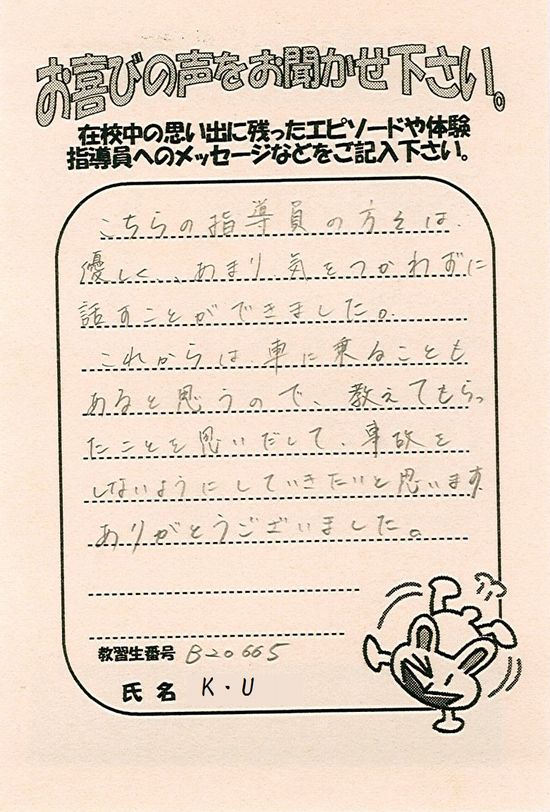 お喜びの声をお聞かせ下さい。
在校中の思い出に残ったエピソードや体験
指導員へのメッセージなどをご記入下さい。
こちらの指導員の方々は
優しく、あまり気をつかわずに
話すことができました。
これからは車に乗ることも
あると思うので、教えてもらっ
たことを思いだして、事故を
しないようにしていきたいと思います
ありがとうございました。
教習生番号 B20665
氏名 K・U